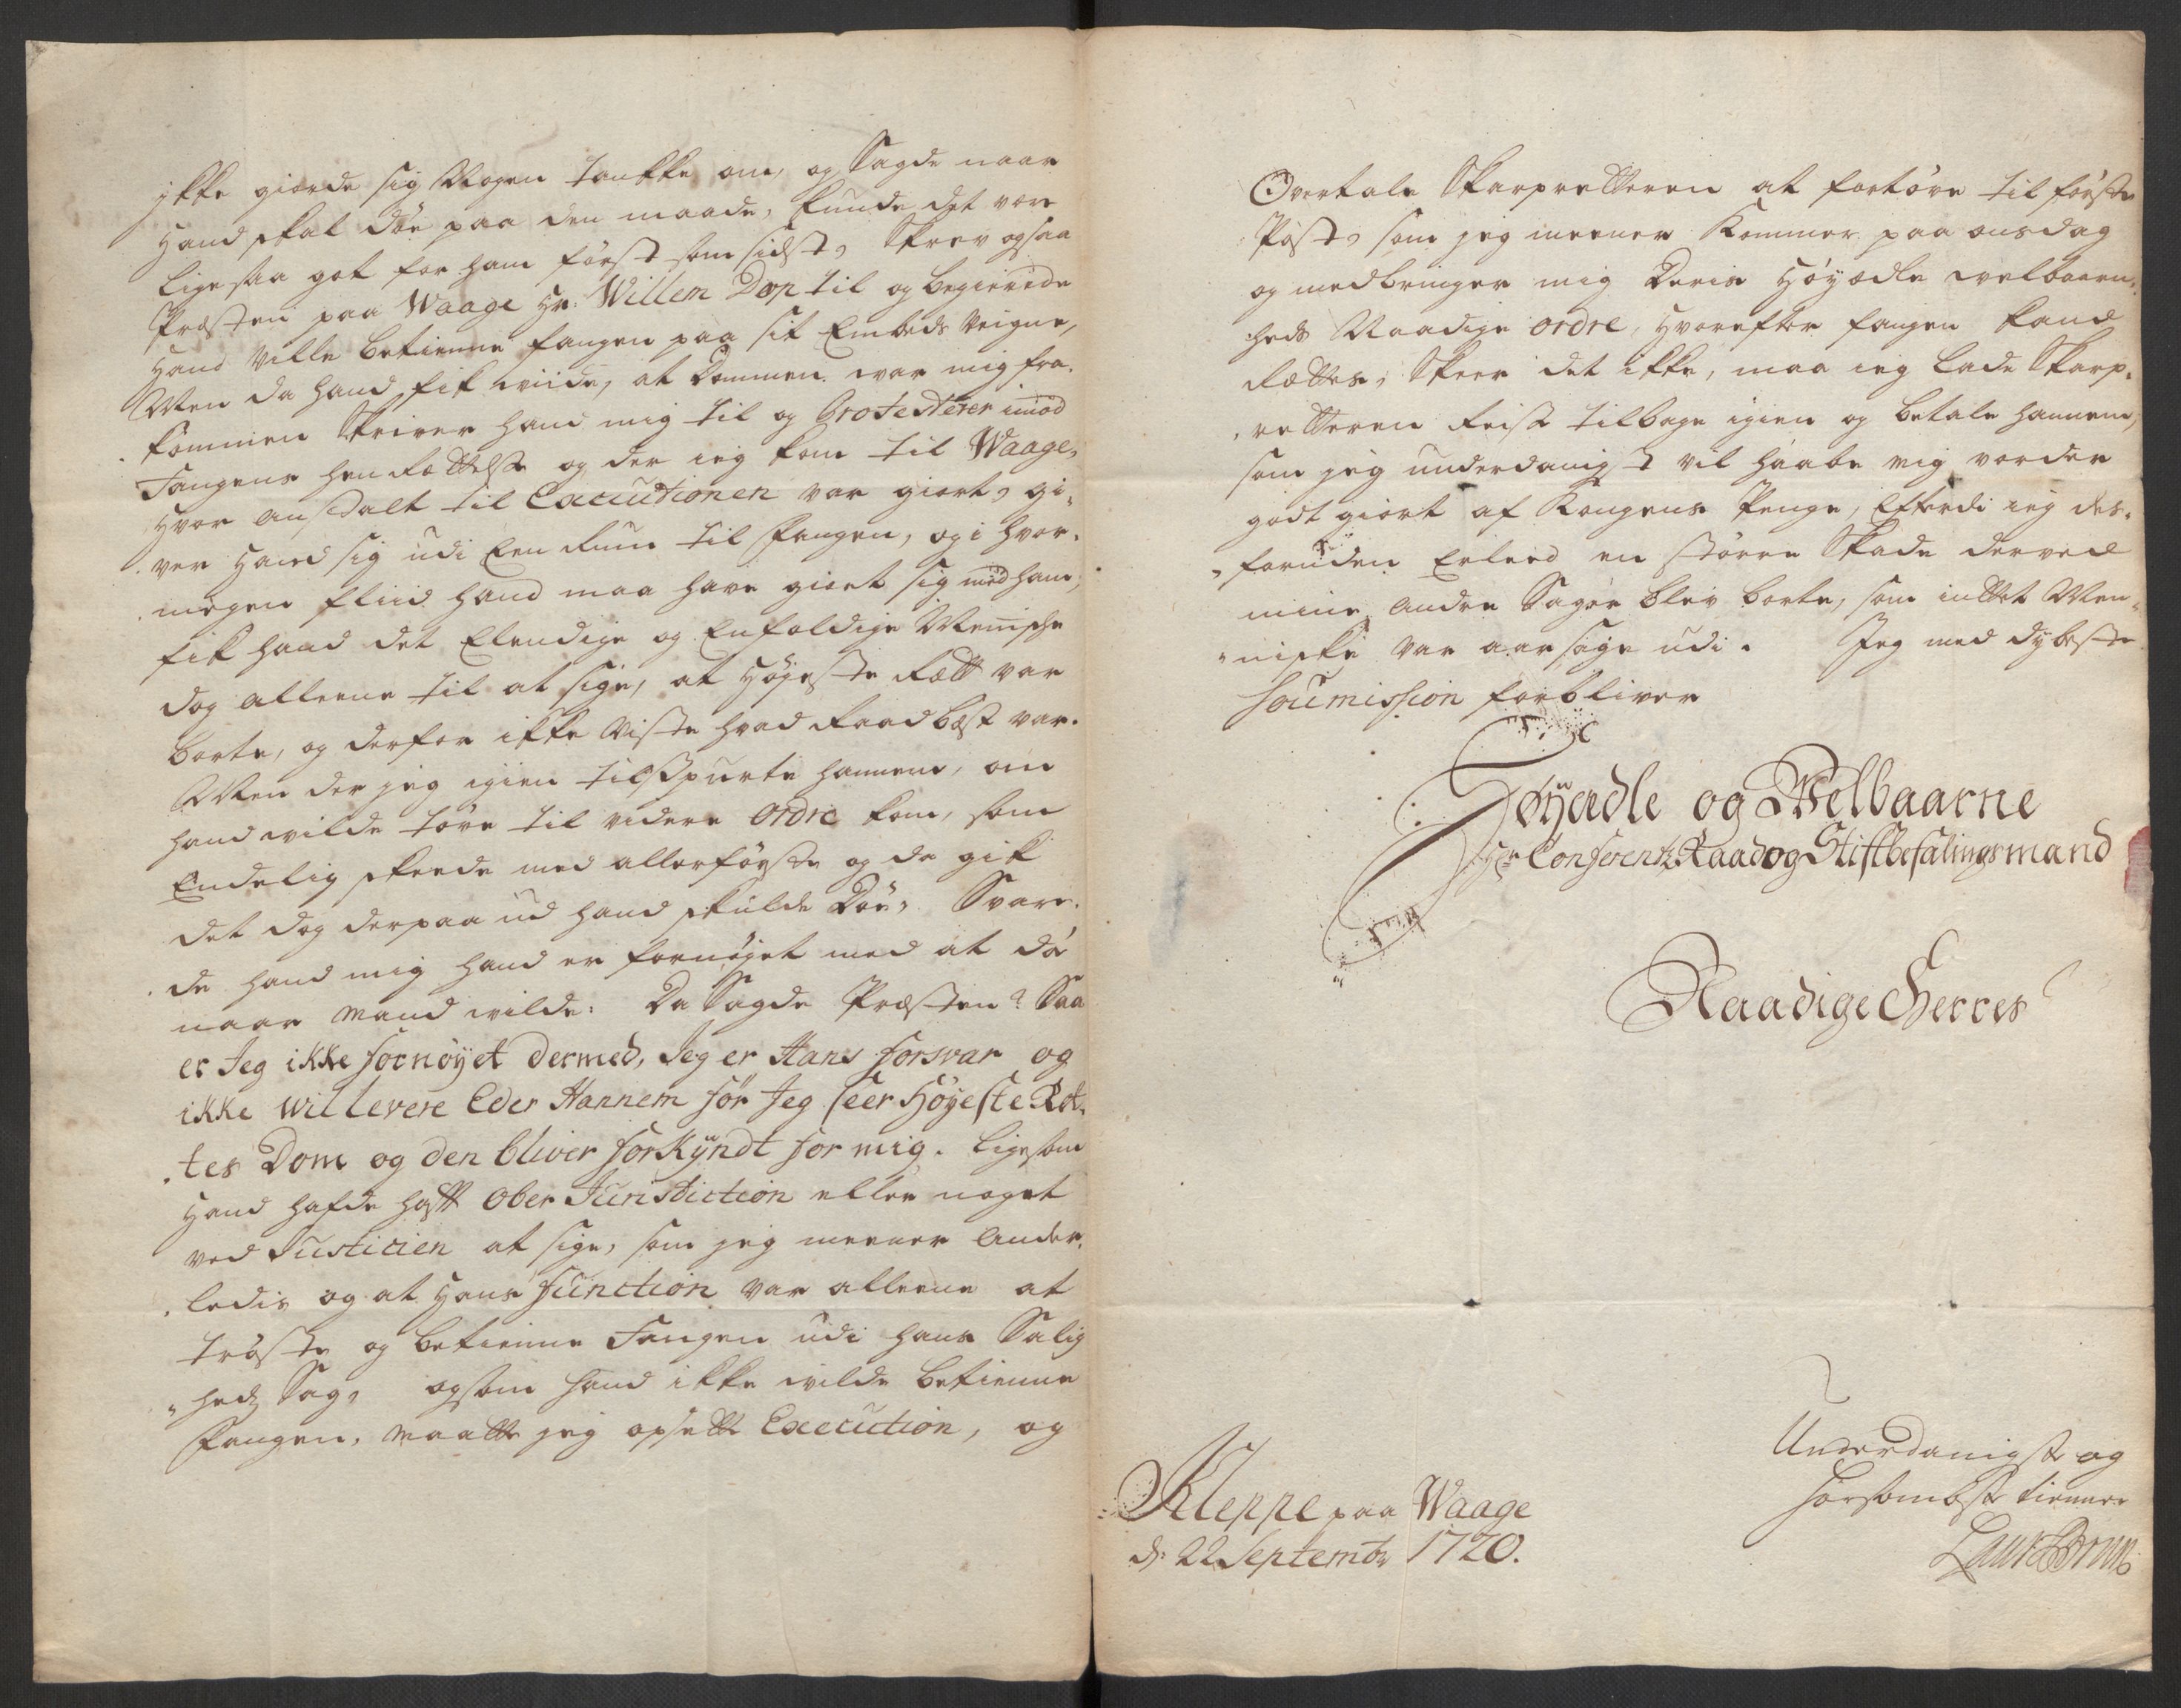 ikke giorde sig Nogen tankke om, og Sagde naar
Hand skal döe paa den maade, kunde det vere
ligesaa got for ham först som sidst, Skrev ogsaa
Præsten paa Waage Hr: Willem Dop til og begierede
Hand ville betienne fangen paa sit Embeds Veigne,
Men da hand fik wiide, at Dommen war mig fra¬
kommen Skriver hand mig til og Protesterer imod
Fangens hen Rettelse og der ieg kom til Waage,
Hvor anstalt til Executionen var giort, gi¬
ver Hand sig udi Een Rum til fangen, og i hvor¬
megen fliid hand maa have giort sig med ham,
fik hand det Elendige og Enfoldige Menische
dog alleene til at sige, at Höyeste Rett var
borte, og derfor ikke Viste hvad Raad best var.
Men der jeg igien tilspurte hannem, om
hand wilde töve til videre ordre kom, som
Endelig skeede med allerförste og da gik
det dog derpaa ud hand skulde Döe, Svare¬
de hand mig hand er fornöyet med at dö
naar mand wilde: Da Sagde Præsten? Saa
er Jeg ikke fornöyet dermed, Jeg er Hans forsvar og
ikke wil levere Eder Hannem för Jeg seer Höyeste Ret¬
tes Dom og den bliver forkyndt for mig. ligesom
Hand hafde hafft Ober Jurisdiction eller noget
ved Justitien at sige, som jeg meener Ander¬
ledis og at Hans function var alleene at
tröste og betienne Fangen udi hans Salig
heds Sag, og som Hand ikke wilde betienne
fangen, Maatte jeg opsette Execution, og
Overtale Skarpretteren at fortöve til förste
Post, som jeg meener Kommer paa onsdag
og medbringer mig Deris Höyædle welbaaren¬
heds Naadige ordre, Hvorefter fangen kand
Rettes, Skeer det ikke, maa ieg lade Skarp¬
retteren Reise tilbage igien og betale hannem,
som jeg underdanigst vil haabe mig vorder
godt giort af Kongens Penge, Efterdi ieg des¬
foruden Erleed en större Skade derved
mine Andre Sager blev borte, som intet Men¬
niske var aarsage udi. Jeg med dybeste
soumission forbliver
Höyædle og Welbaarne
Hr Conferentz Raad og Stiftbefalingsmand
Naadige Herres
Underdanigste og
horsombste tienner
Kleppe paa Waage
d: 22 Septembr 1720.